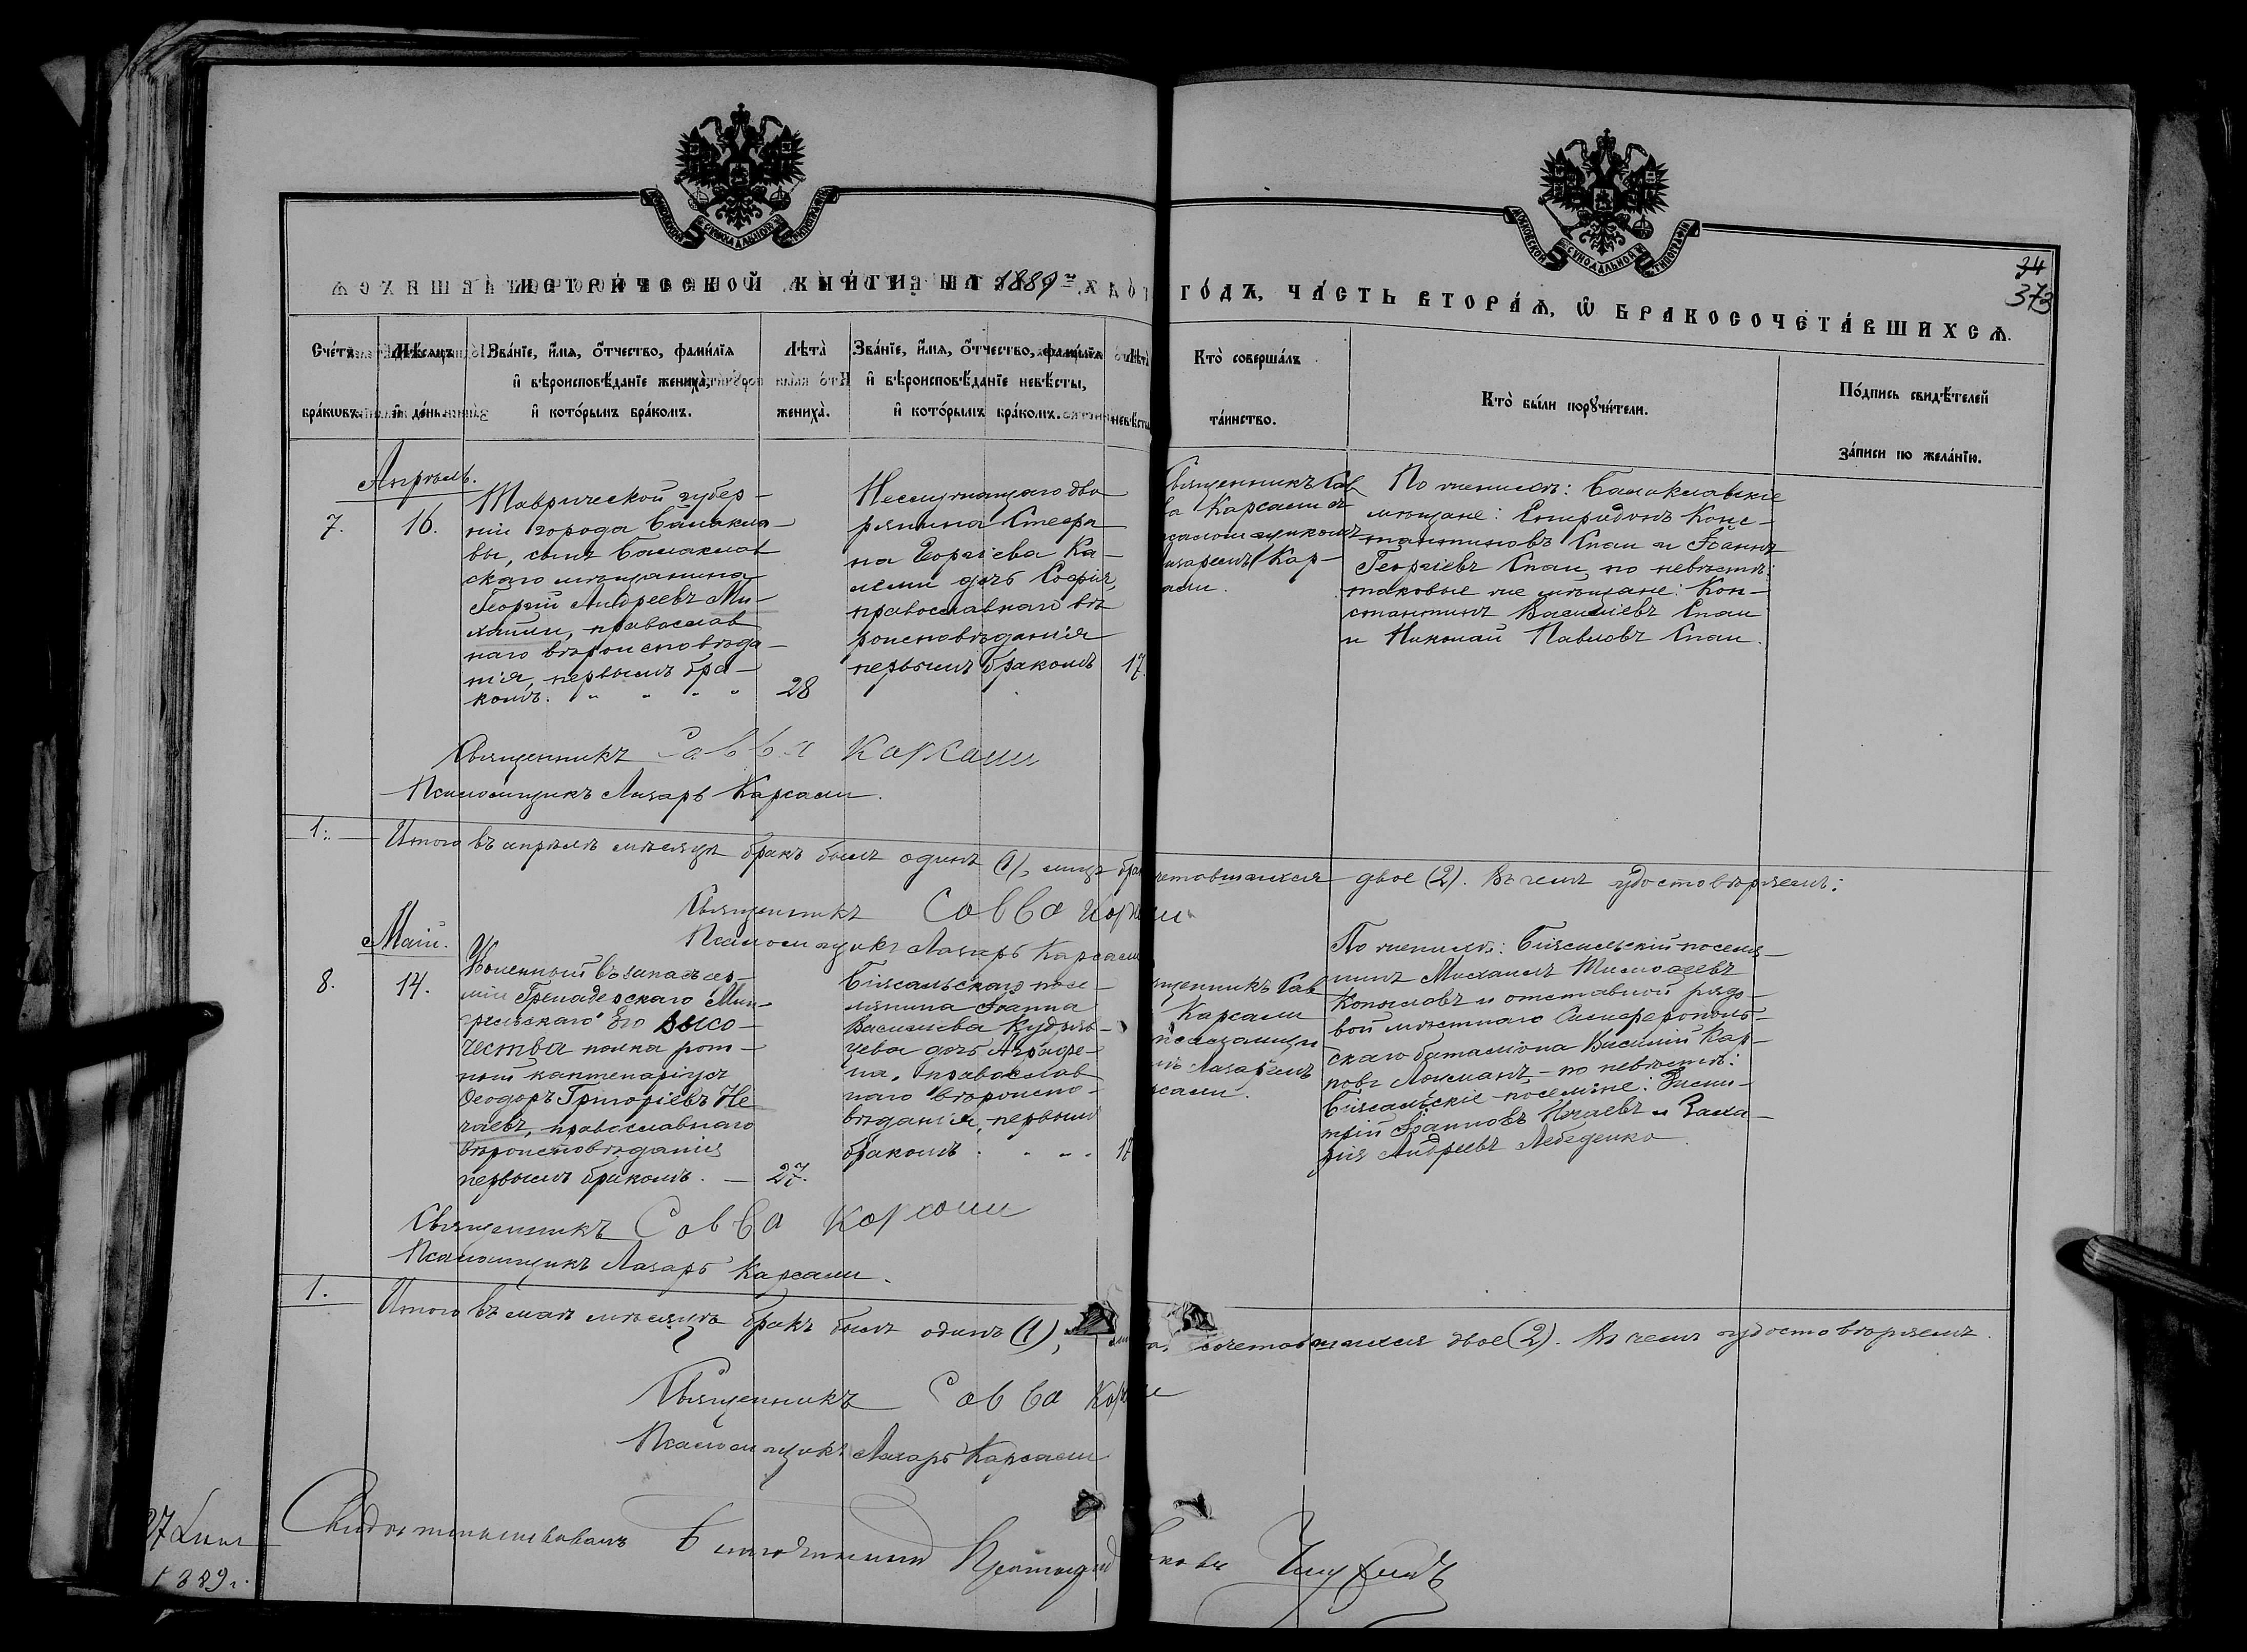 МЕТРИЧЕСКОЙ КНИГИ НА 1889 й
ГОДЪ, ЧАСТЬ ВТОРАЯ, Ѡ БРАКОСОЧЕТАВШИХСЯ.
34
373
Счетъ браковъ.
Мѣсяцъ и день.
Званіе, имя, отчество, фамилія
и вѣроисповѣданіе жениха,
и которымъ бракомъ.
Лѣта
жениха.
Званіе, имя, отчество, фамилія
и вѣроисповѣданіе невѣсты,
и которымъ бракомъ.
Лѣта
невѣсты
Кто совершалъ
таинство.
Кто были поручители.
Подпись свидѣтелей
записи по желанію.
Апрѣль.
7.
16.
Таврической губер-
ніи города Балакла-
вы, сынъ Балаклав
скаго мѣщанина
Георгій Андреевъ Ми-
хайли, православ
наго вѣроисповѣда-
нія, первымъ бра-
комъ.
28
Неслужащаго дво
рянина Стефа
на Георгіева Ка-
дочь Софія,
православнаго вѣ
роисповѣданія
первымъ бракомъ
17.
Священникъ Сав
ва Карсами съ
псаломщикомъ
Лазаремъ Кар-
сами.
По женихѣ: Балаклавскіе
мѣщане: Спиридонъ Конс-
тантиновъ Спаи и Іоаннъ
Георгіевъ Спаи, по невѣстѣ:
таковые же мѣщане: Кон-
стантинъ Василіевъ Спаи
и Николай Павловъ Спаи.
Священникъ Савва Карсами
Псаломщикъ Лазарь Карсами.
1.
Итого въ апрѣлѣ мѣсяцѣ бракъ былъ одинъ (1), лицъ бракосочетавшихся двое (2). Въ чемъ удостовѣряемъ:
Священникъ Савва Карсами
Псаломщикъ Лазарь Карсами
Май.
8.
14.
Уволенный въ запасъ ар-
міи Гренадерскаго Мин-
грельскаго Его Высо-
чества полка рот-
ный каптенармусъ
Ѳеодоръ Григоріевъ Не
чаевъ, православнаго
вѣроисповѣданія
первымъ бракомъ.
27.
Біясальскаго посе-
лянина Іоанна
Василіева Кудряв-
цева дочь Аграфе-
на, православ
наго вѣроиспо-
вѣданія, первымъ
бракомъ
17
Священникъ Сав
Карсами
псаломщи
мъ Лазаремъ
Карсами.
По женихѣ: Біясальскій поселя-
нинъ Михаилъ Тимоѳеевъ
Копыловъ и отставной рядо-
вой мѣстнаго Симферополь-
скаго баталіона Василій Кар-
повъ Лохманъ - по невѣстѣ:
Біясальскіе поселяне: Дими-
трій Іоанновъ Нечаевъ и Заха-
рія Андреевъ Лебеденко.
Священникъ Савва Карсами
Псаломщикъ Лазарь Карсами.
1.
Итого въ маѣ мѣсяцѣ бракъ былъ одинъ (1), сочетавшихся двое (2). Въ чемъ удостовѣряемъ.
Священникъ Савва Карсами
Псаломщикъ Лазарь Карсами
1889 г.
Свидѣтельствовалъ Благочинный